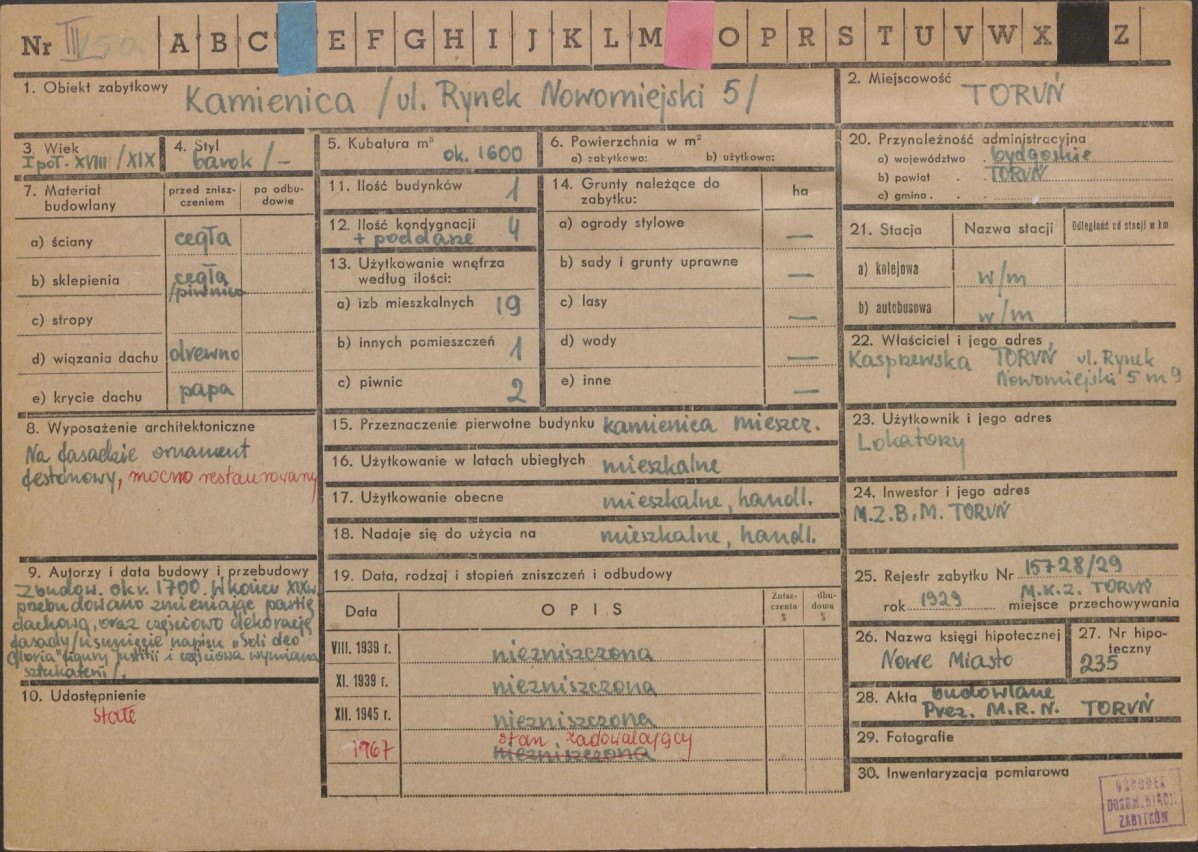 Nr III/50 A B C E F G H I J K L M O P R S T U V W X Z
1. Obiekt zabytkowy Kamienica /ul. Rynek Nowomiejski 5/
2. Miejscowość TORUŃ
3. Wiek I poł. XVIII/XIX
4. Styl barok/-
5. Kubatura m³ ok. 1600
6. Powierzchnia w m²
a) zabytkowa: b) użytkowa:
20. Przynależność administracyjna
a) województwo bydgoskie
b) powiat TORUŃ
c) gmina
7. Materiał budowlany
przed zniszczeniem
po odbudowie
a) ściany cegła
b) sklepienia cegła /piwnica
c) stropy
d) wiązania dachu drewno
e) krycie dachu papa
11. Ilość budynków 1
12. Ilość kondygnacji 4
+ poddasze
13. Użytkowanie wnętrza
według ilości:
a) izb mieszkalnych 19
b) innych pomieszczeń 1
c) piwnic 2
14. Grunty należące do
zabytku:
ha
a) ogrody stylowe —
b) sady i grunty uprawne —
c) lasy —
d) wody —
e) inne —
21. Stacja Nazwa stacji Odległość od stacji w km
a) kolejowa w/m
b) autobusowa w/m
22. Właściciel i jego adres
Kasprzewska TORUŃ ul. Rynek
Nowomiejski 5 m 9
8. Wyposażenie architektoniczne
Na fasadzie ornament
festonowy, mocno restaurowany
15. Przeznaczenie pierwotne budynku kamienica mieszcz.
16. Użytkowanie w latach ubiegłych mieszkalne
17. Użytkowanie obecne mieszkalne, handl.
18. Nadaje się do użycia na mieszkalne, handl.
23. Użytkownik i jego adres
Lokatorzy
24. Inwestor i jego adres
M.Z.B.M. TORUŃ
9. Autorzy i data budowy i przebudowy
Zbudow. okr. 1700. W końcu XIX w.
przebudowano zmieniając partię
dachową, oraz częściowo dekorację
fasady /usunięcie napisu "Soli deo
gloria" figury Justitii i częściowa wymiana
sztukaterii/.
10. Udostępnienie
stałe
19. Data, rodzaj i stopień zniszczeń i odbudowy
Data OPIS Zniszczenia % dbudowa %
VIII. 1939 r. niezniszczona
XI. 1939 r. niezniszczona
XII. 1945 r. niezniszczona
1967 stan zadowalający
niezniszczona
25. Rejestr zabytku Nr 15728/29
M.K.Z. TORUŃ
rok 1929 miejsce przechowywania
26. Nazwa księgi hipotecznej
Nowe Miasto
27. Nr hipoteczny
235
28. Akta budowlane
Prez. M.R.N. TORUŃ
29. Fotografie
30. Inwentaryzacja pomiarowa
OŚRODEK
DOKUMENTACJI
ZABYTKÓW